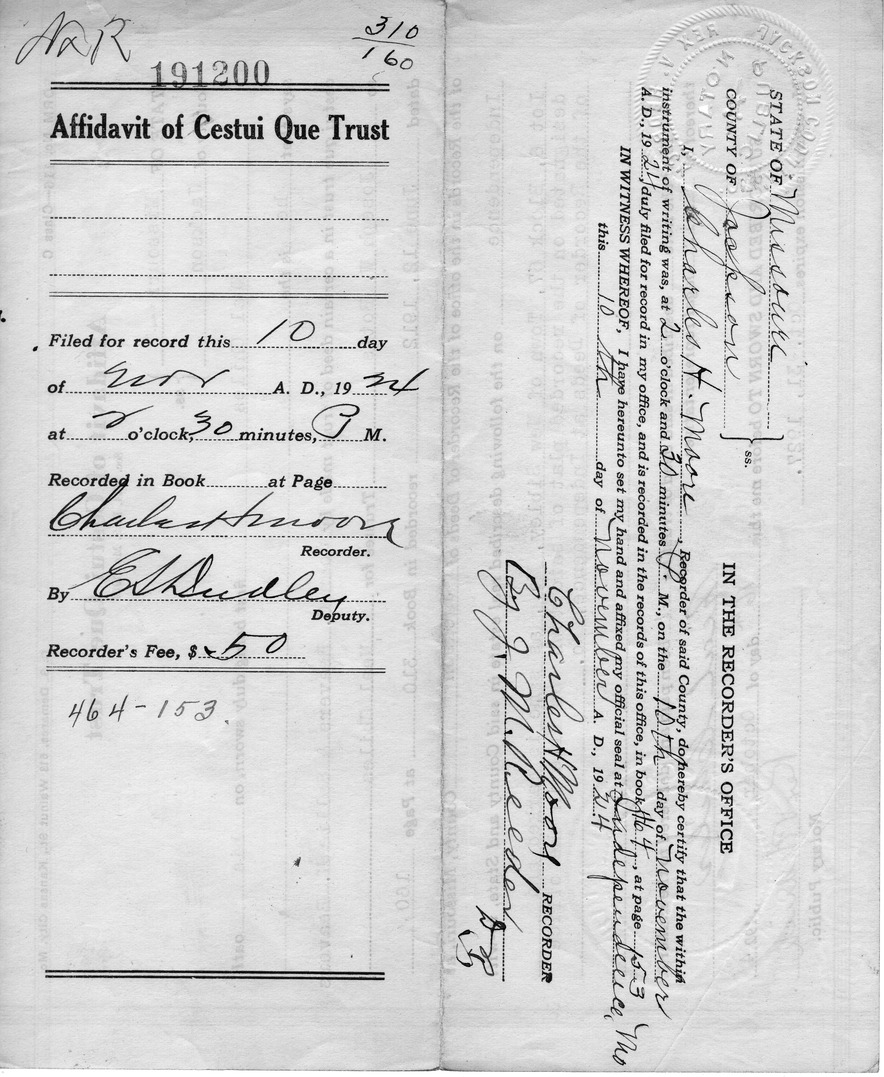 310
160
191200
Affidavit of Cestui Que Trust
Filed for record this 10 day
of Nov A. D., 1924
at 2 o'clock, 30 minutes, P M.
Recorded in Book at Page
Charles H Moore
Recorder.
By E S Dudley
Deputy.
Recorder's Fee, $ 50
464-153.
STATE OF Missouri
COUNTY OF Jackson
ss.
IN THE RECORDER'S OFFICE
I, Charles H. Moore, Recorder of said County, do hereby certify that the within
instrument of writing was, at 2 o'clock and 30 minutes P. M., on the 10th day of November
A. D., 1924, duly filed for record in my office, and is recorded in the records of this office, in book 464, at page 153
IN WITNESS WHEREOF, I have hereunto set my hand and affixed my official seal at Independence, Mo
this 10th day of November A. D., 1924
Charles H Moore RECORDER
By J. M. Reeder